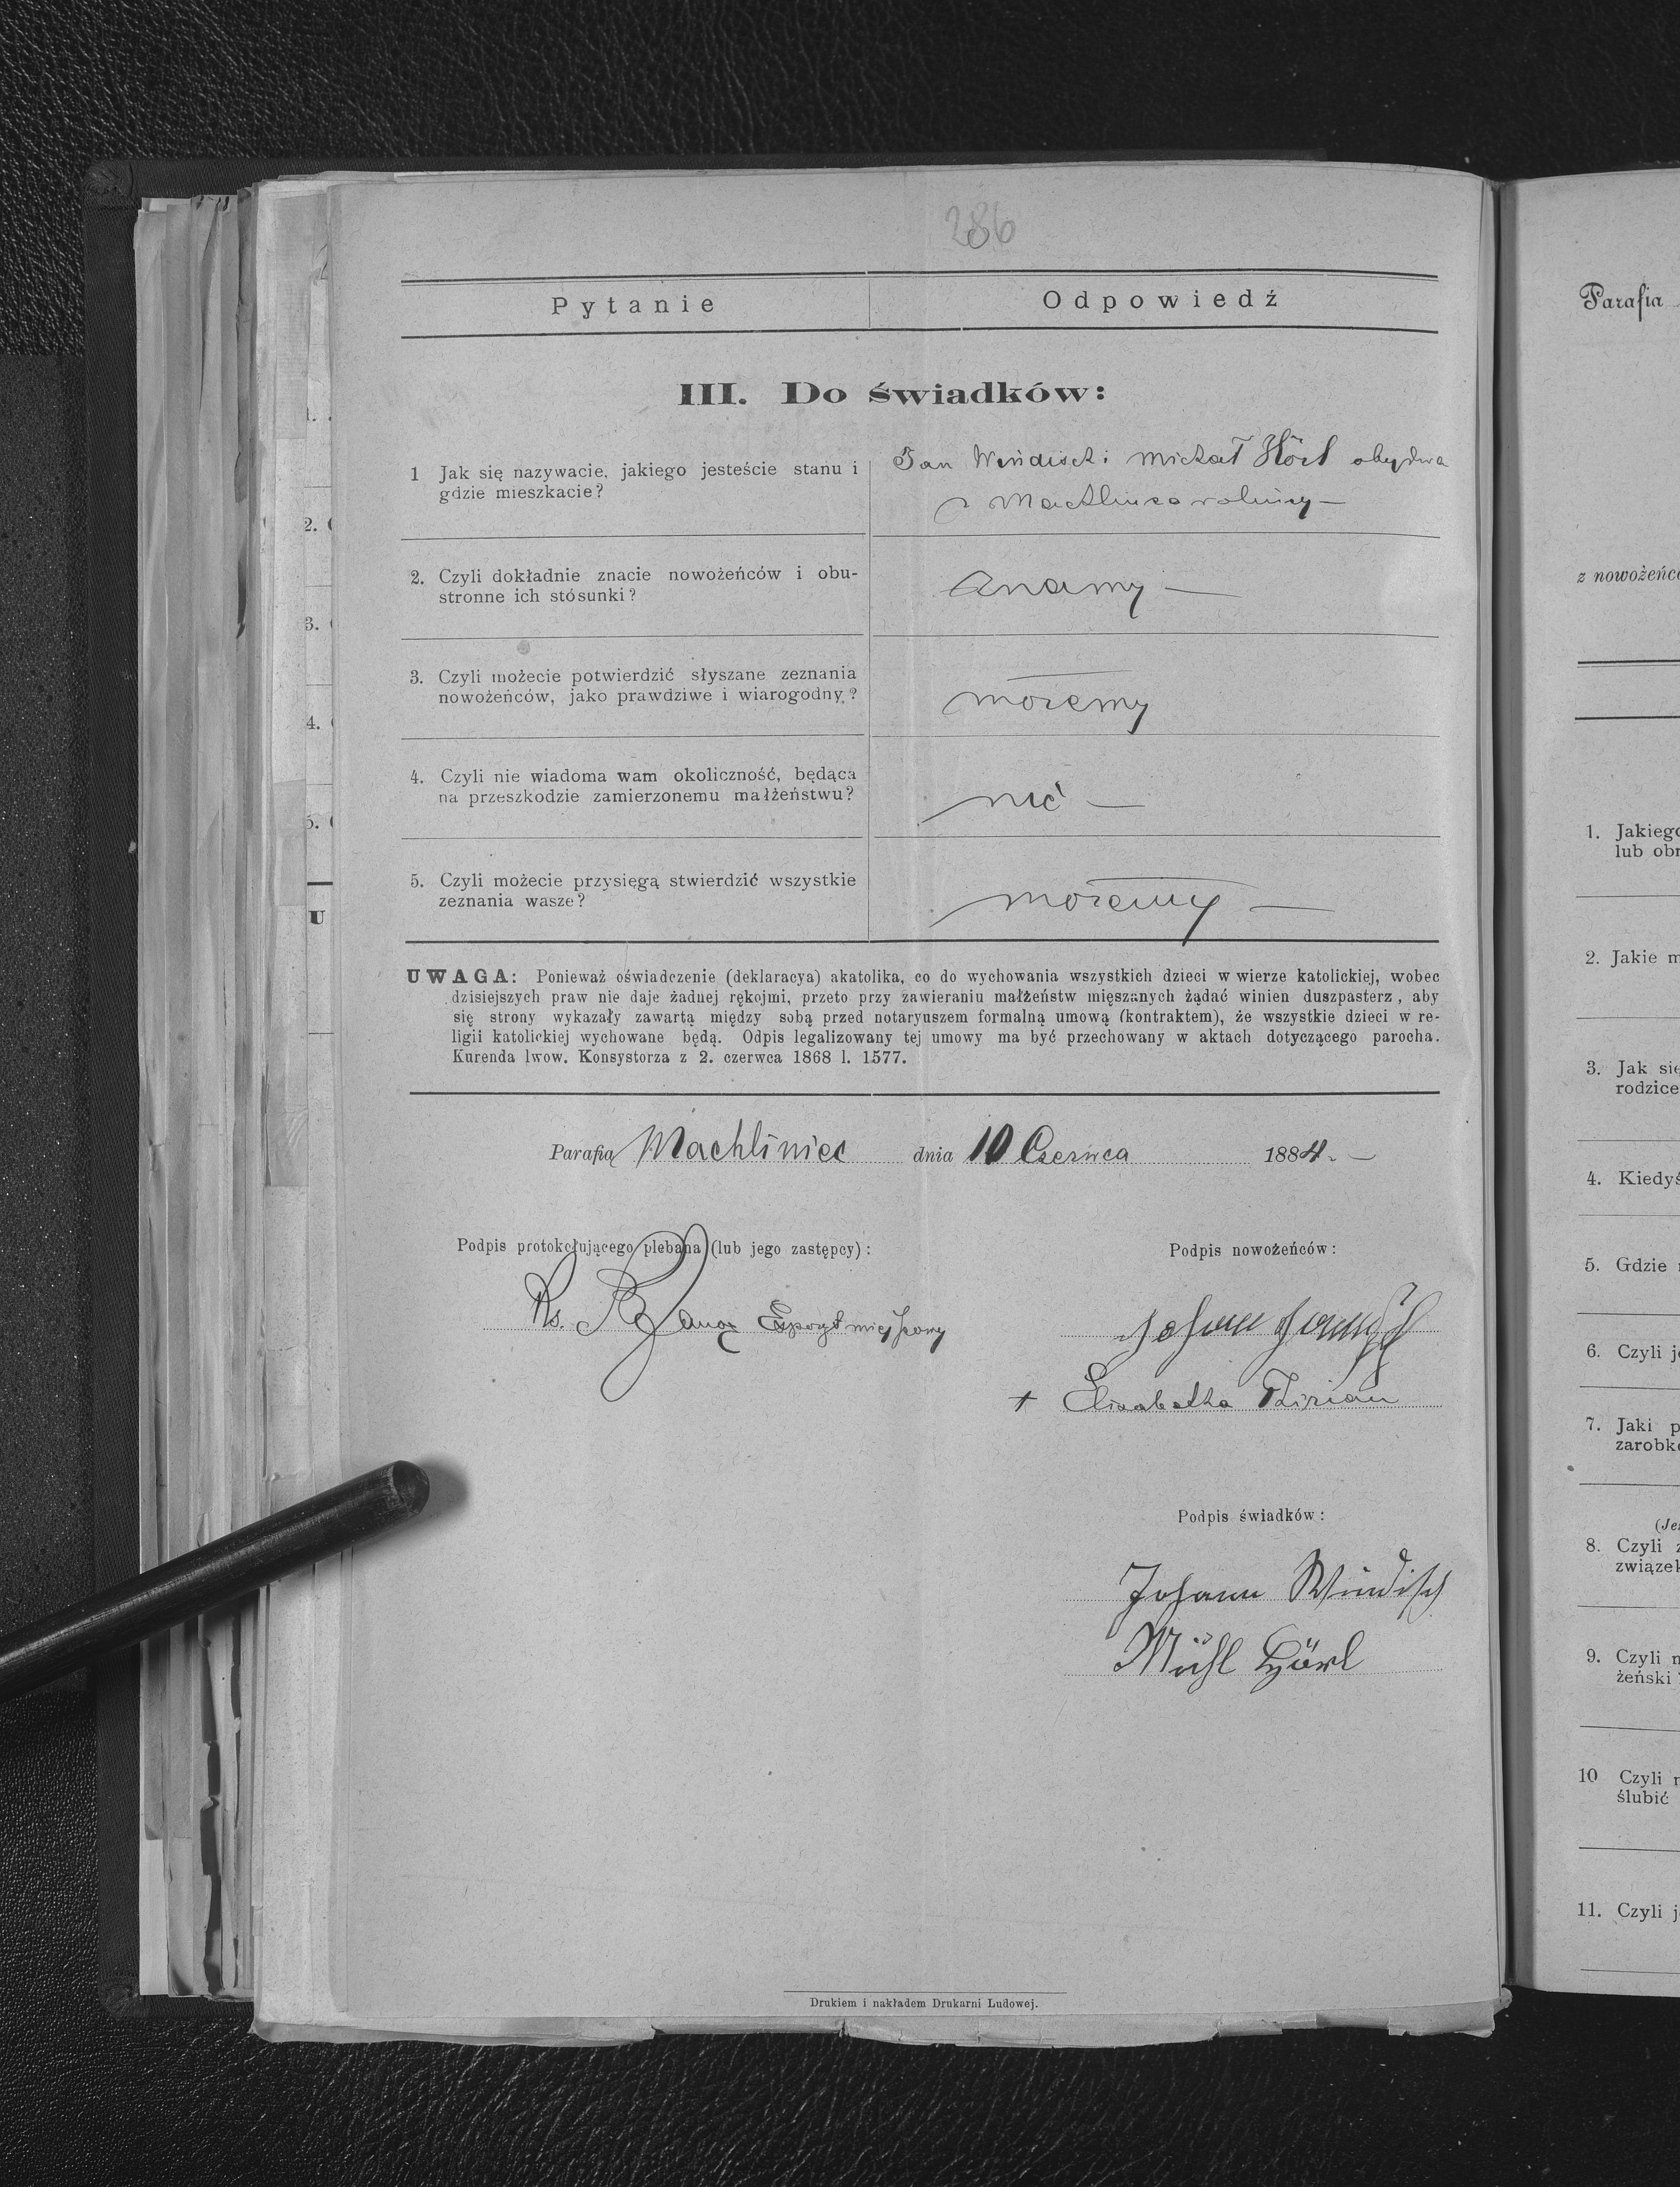 286
Pytanie
Odpowiedź
III. Do świadków:
1 Jak się nazywacie, jakiego jesteście stanu i
gdzie mieszkacie?
Jan Windisch i Michał Hörl obydwa
z Machlińca rolnicy —
2. Czyli dokładnie znacie nowożeńców i obu-
stronne ich stósunki?
znamy —
3. Czyli możecie potwierdzić słyszane zeznania
nowożeńców, jako prawdziwe i wiarogodny?
możemy
4. Czyli nie wiadoma wam okoliczność, będąca
na przeszkodzie zamierzonemu małżeństwu?
nić —
5. Czyli możecie przysięgą stwierdzić wszystkie
zeznania wasze?
możemy —
UWAGA: Ponieważ oświadczenie (deklaracya) akatolika, co do wychowania wszystkich dzieci w wierze katolickiej, wobec
dzisiejszych praw nie daje żadnej rękojmi, przeto przy zawieraniu małżeństw mięszanych żądać winien duszpasterz, aby
się strony wykazały zawartą między sobą przed notaryuszem formalną umową (kontraktem), że wszystkie dzieci w re-
ligii katolickiej wychowane będą. Odpis legalizowany tej umowy ma być przechowany w aktach dotyczącego parocha.
Kurenda lwow. Konsystorza z 2. czerwca 1868 l. 1577.
Parafia Machliniec dnia 10 Czerwca 1884. —
Podpis protokołującego plebana (lub jego zastępcy):
Podpis nowożeńców:
Ks.
Johann
+ Elisabetha
Podpis świadków:
Johann Windisch
Michl Hörl
Drukiem i nakładem Drukarni Ludowej.
1.
2.
3.
4.
5.
U
Parafia
z nowożeńcó
1. Jakiego
lub obr
2. Jakie m
3. Jak się
rodzice
4. Kiedyś
5. Gdzie
6. Czyli j
7. Jaki p
zarobk
(Je
8. Czyli
związek
9. Czyli
żeński
10 Czyli
ślubić
11. Czyli j